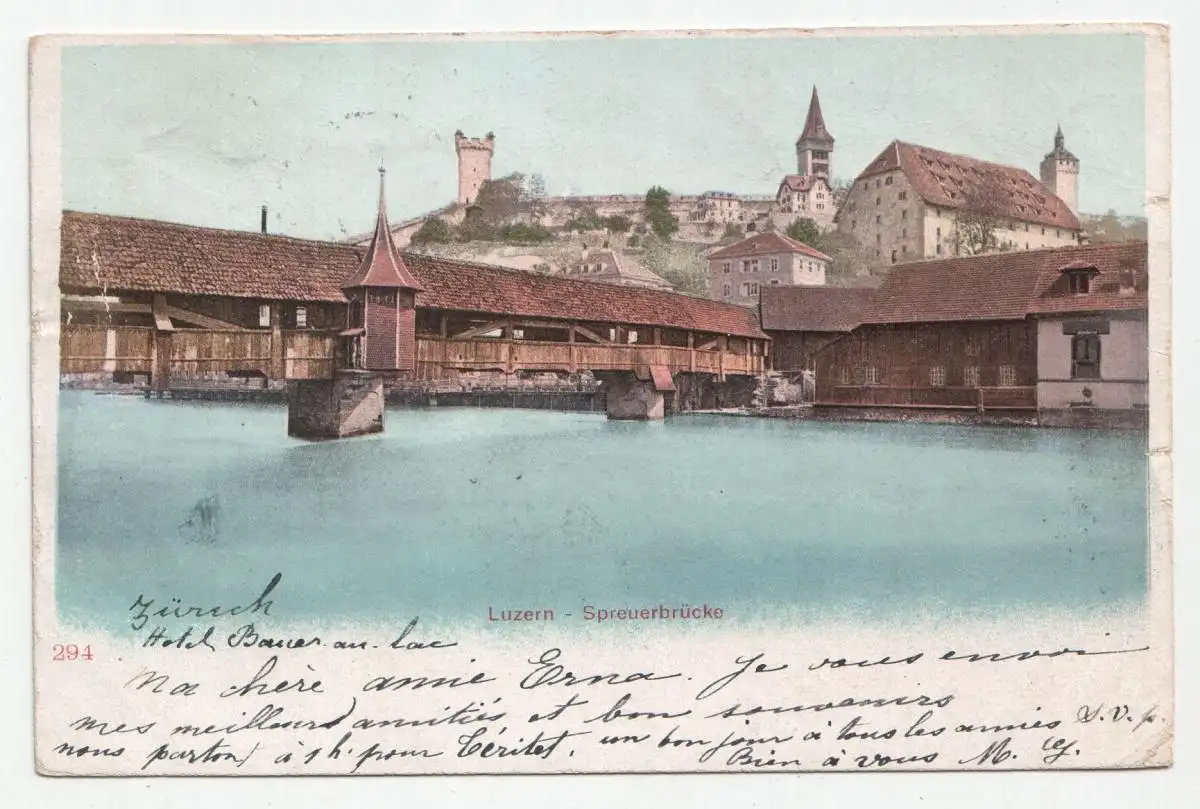 Luzern - Spreuerbrücke
294
Zürich
Hotel Bauer-au-Lac
Ma chère amie Erna. Je vous envoi
mes meilleurs amitiés et bon souvenirs
nous partons à 1h. pour Téritet. un bon jour à tous les amies S. V. p.
Bien à vous M. G.